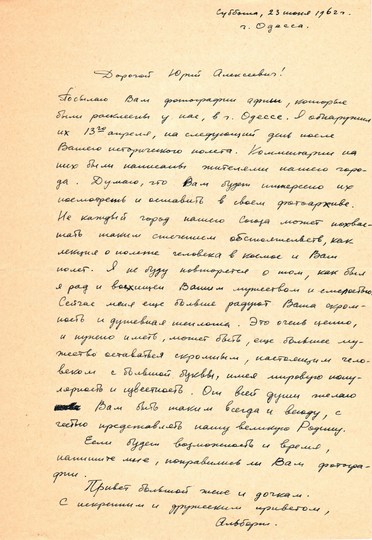 Суббота, 23 июня 1962 г.
г. Одесса.
Дорогой Юрий Алексеевич!
Посылаю Вам фотографии афиш, которые
были расклеены у нас, в г. Одессе. Я обнаружил
их 13го апреля, на следующий день после
Вашего исторического полета. Комментарии на
них были написаны жителями нашего горо-
да. Думаю, что Вам будет интересно их
посмотреть и оставить в своем фотоархиве.
Не каждый город нашего Союза может похвас-
тать таким стечением обстоятельств, как
лекция о полете человека в космос и Ваш
полет. Я не буду повторятся о том, как был
я рад и восхищен Вашим мужеством и смелостью.
Сейчас меня еще больше радуют Ваша скром-
ность и душевная теплота. Это очень ценно,
и нужно иметь, может быть, еще большее му-
жество оставаться скромным, настоящим чело-
веком с большой буквы, имея мировую попу-
лярность и известность. От всей души желаю
Вам быть таким всегда и всюду, с
честью представлять нашу великую Родину.
Если будет возможность и время,
напишите мне, понравились ли Вам фотогра-
фии.
Привет большой жене и дочкам.
С искренним и дружеским приветом,